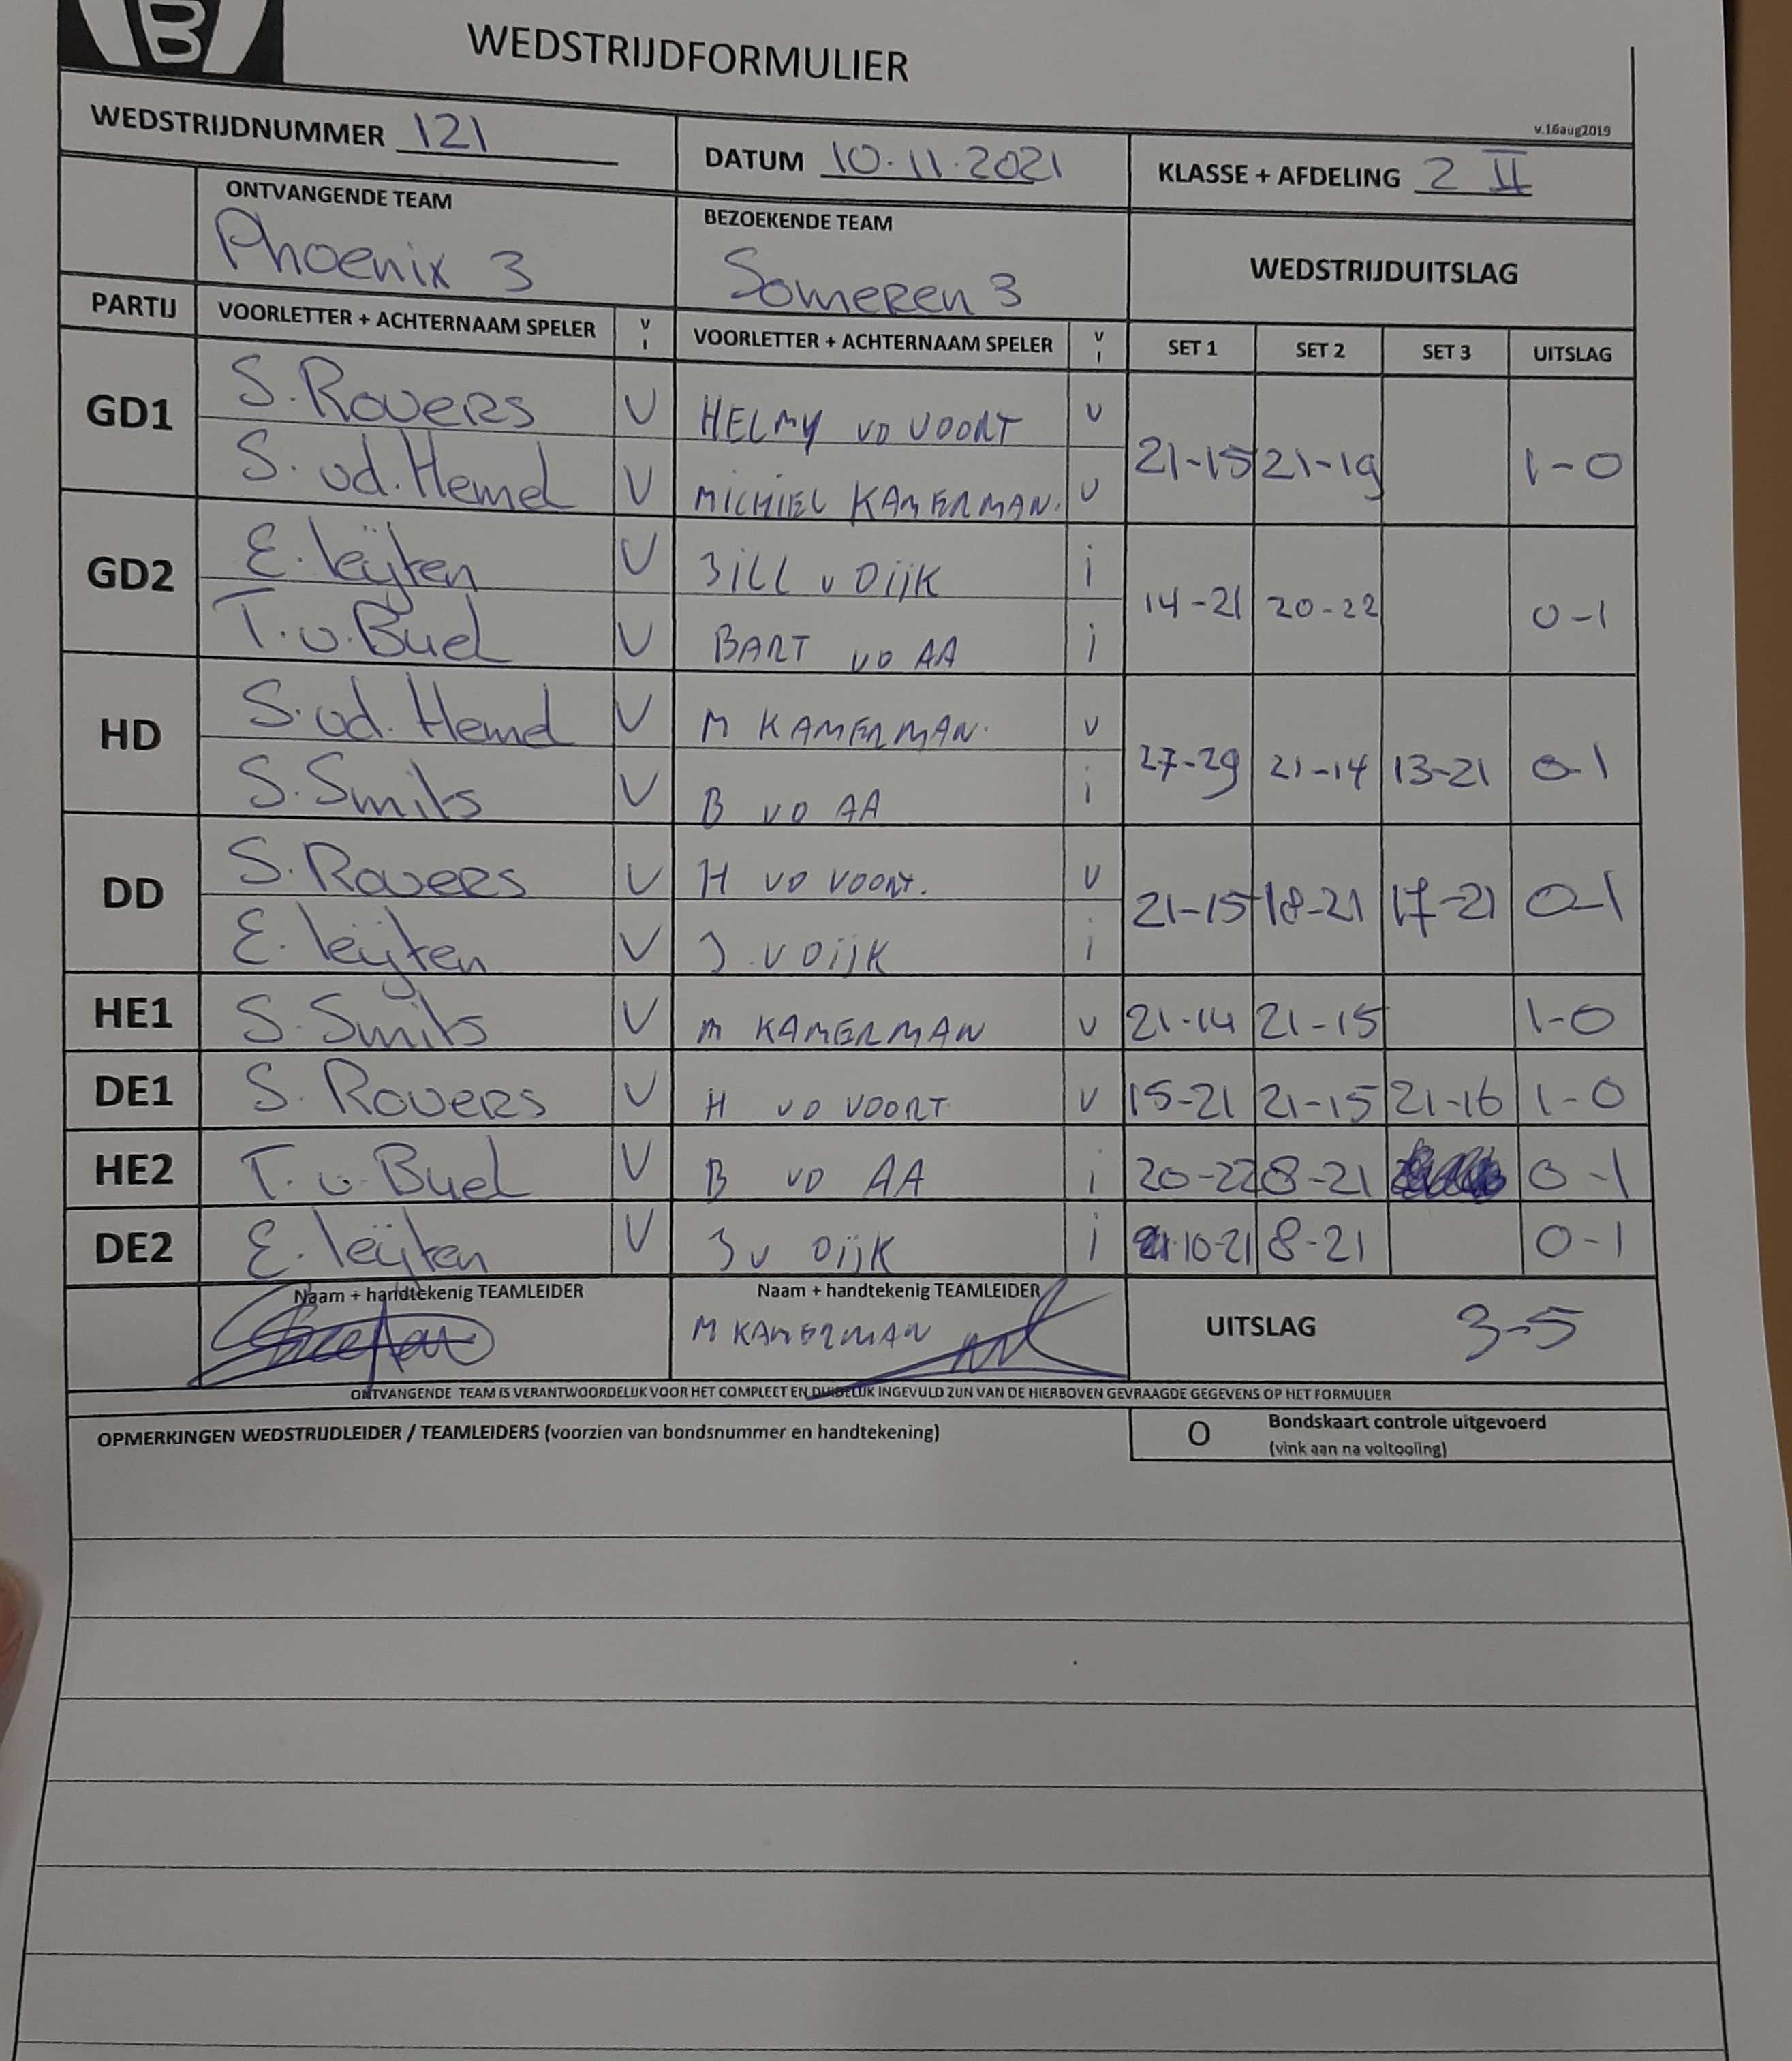 B
WEDSTRIJDFORMULIER
v.16aug2019
WEDSTRIJDNUMMER 121 DATUM 10.11.2021 KLASSE + AFDELING 2 II
ONTVANGENDE TEAM BEZOEKENDE TEAM WEDSTRIJDUITSLAG
Phoenix 3 Someren 3
PARTIJ VOORLETTER + ACHTERNAAM SPELER V I VOORLETTER + ACHTERNAAM SPELER V I SET 1 SET 2 SET 3 UITSLAG
GD1 S. Rovers V HELMY VD VOORT V 21-15 21-19 1-0
S. vd. Hemel V MICHIEL KAMERMAN. V
GD2 E. leijten V JILL v Dijk i 14-21 20-22 0-1
T. v. Buel V BART VD AA i
HD S. vd. Hemel V M KAMERMAN. V 27-29 21-14 13-21 0-1
S. Smits V B VD AA i
DD S. Rovers V H VD VOORT. V 21-15 18-21 17-21 0-1
E. leijten V J V Dijk i
HE1 S. Smits V M KAMERMAN V 21-14 21-15 1-0
DE1 S. Rovers V H VD VOORT V 15-21 21-15 21-16 1-0
HE2 T. v. Buel V B VD AA i 20-22 8-21 0-1
DE2 E. leijten V J v Dijk i 10-21 8-21 0-1
Naam + handtekenig TEAMLEIDER Naam + handtekenig TEAMLEIDER UITSLAG 3-5
M KAMERMAN
ONTVANGENDE TEAM IS VERANTWOORDELIJK VOOR HET COMPLEET EN DUIDELIJK INGEVULD ZIJN VAN DE HIERBOVEN GEVRAAGDE GEGEVENS OP HET FORMULIER
OPMERKINGEN WEDSTRIJDLEIDER / TEAMLEIDERS (voorzien van bondsnummer en handtekening) O Bondskaart controle uitgevoerd
(vink aan na voltooiing)